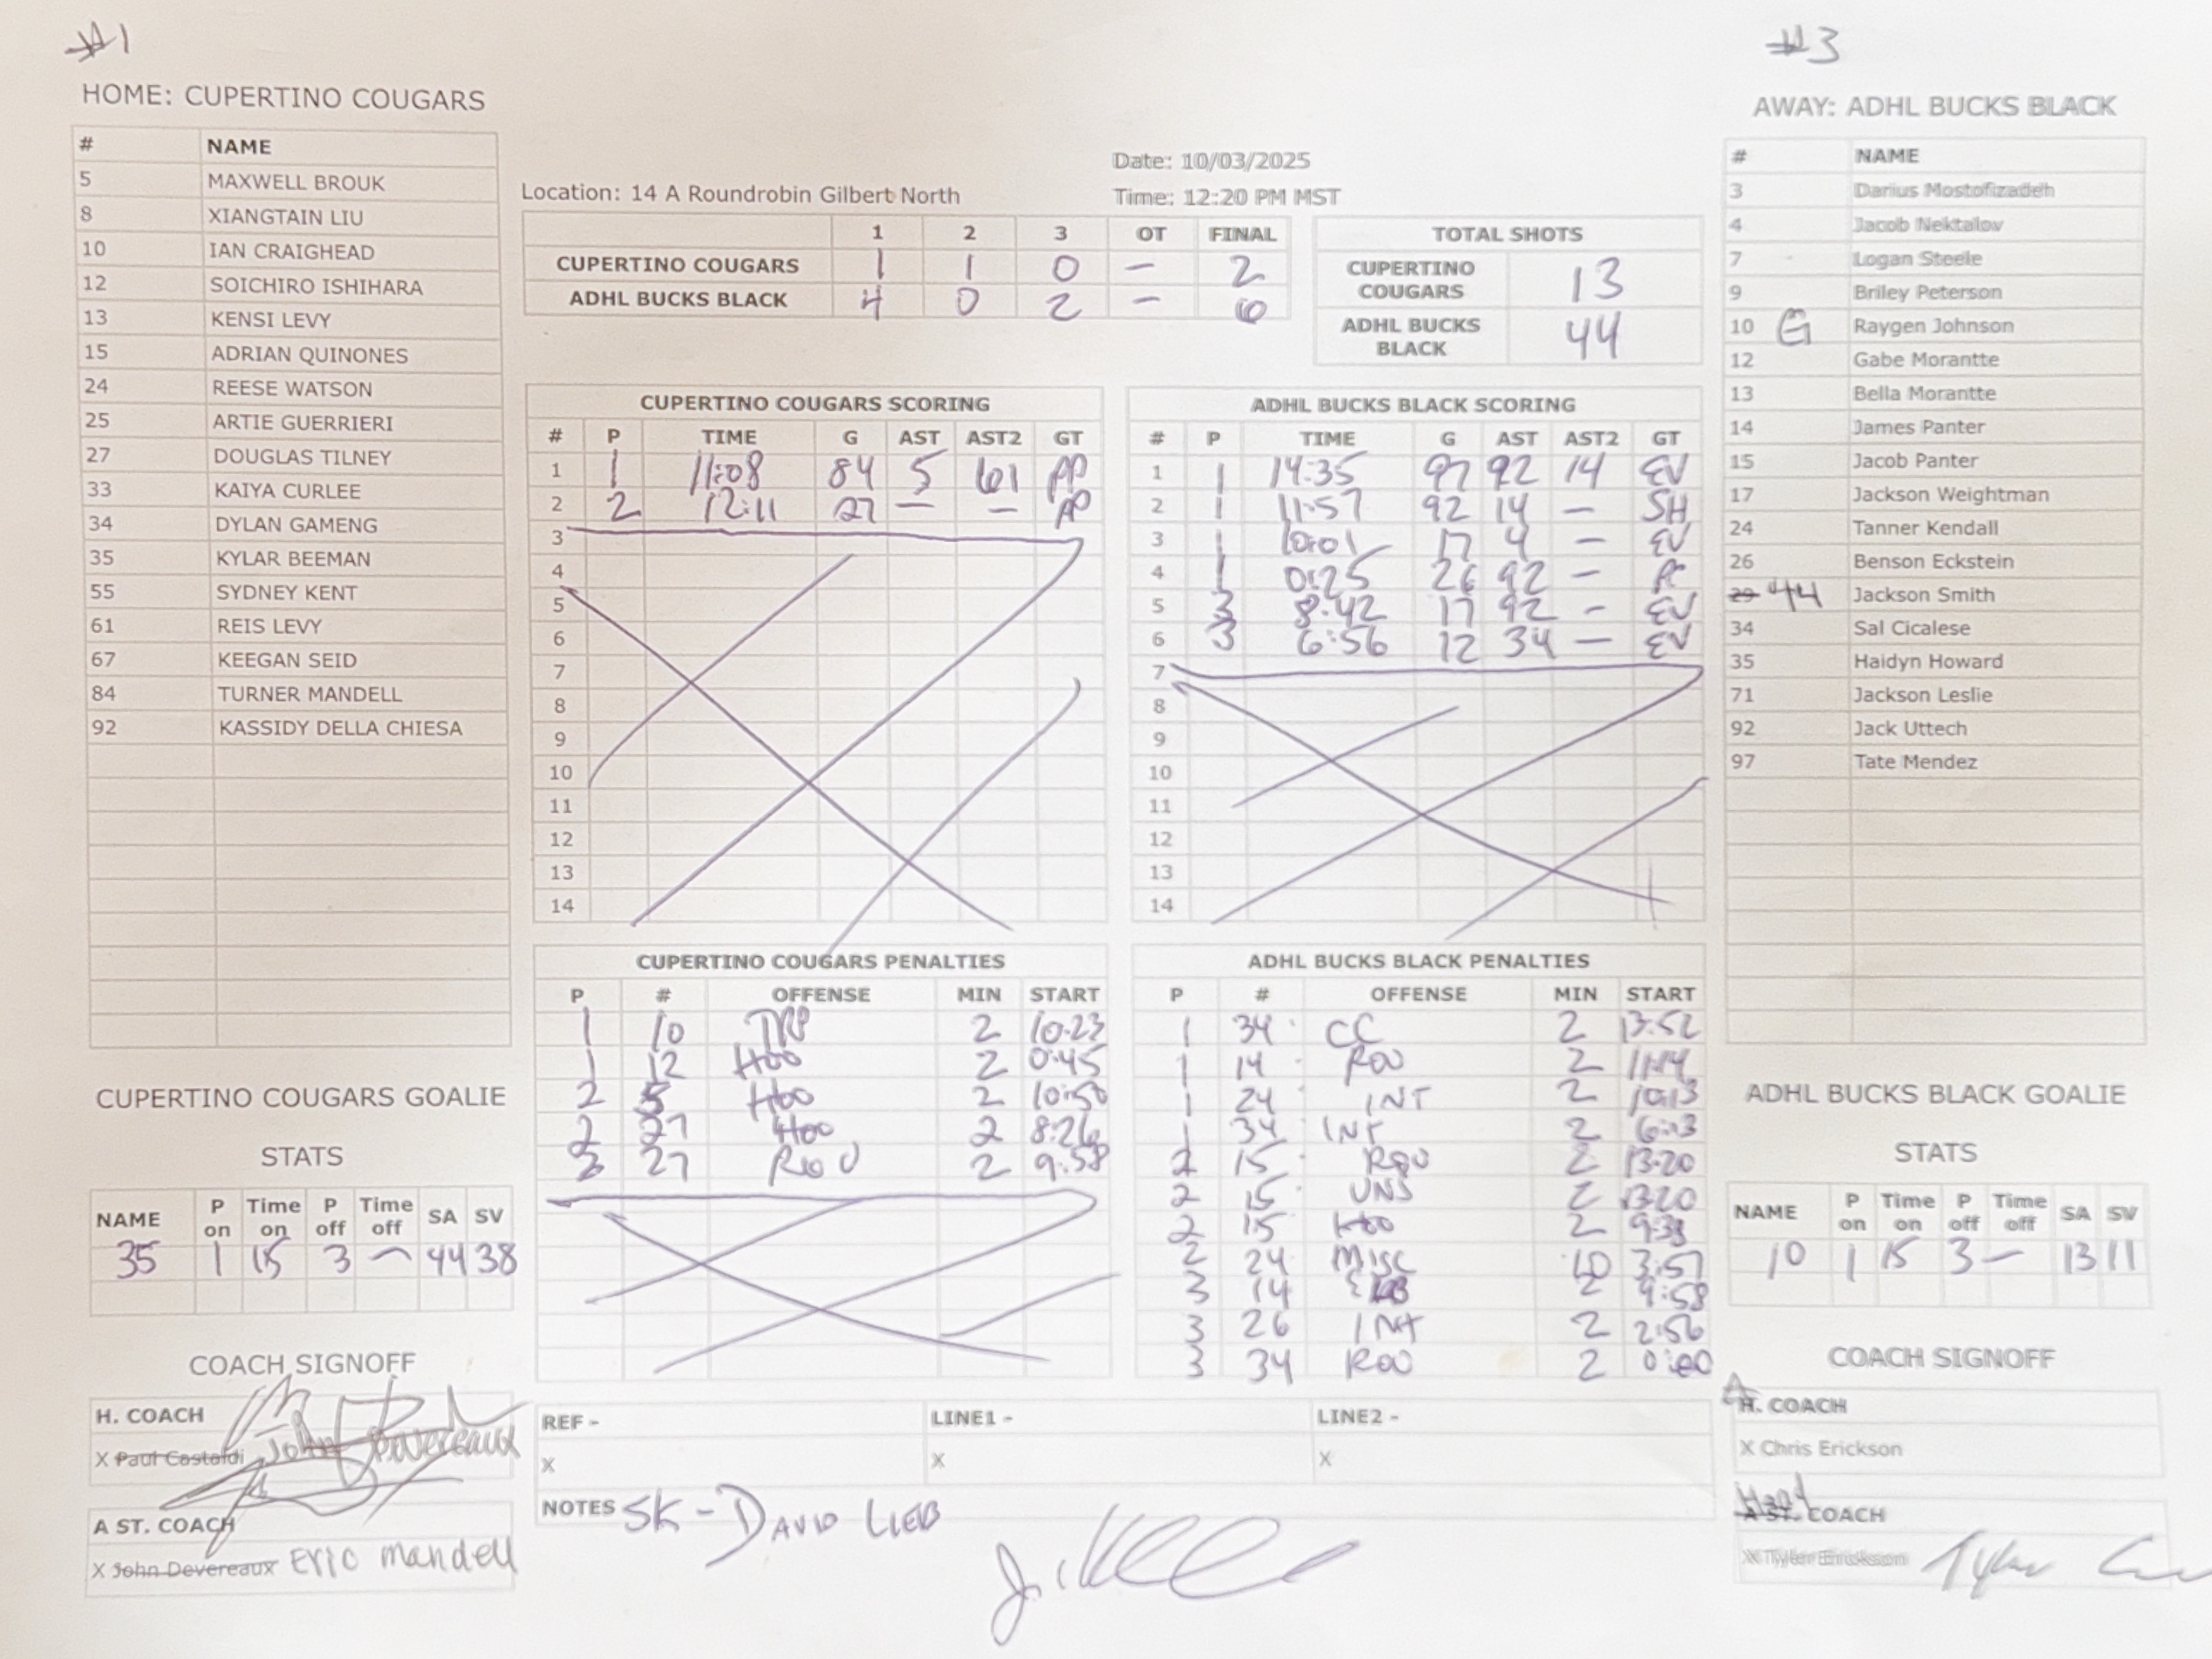 #1
#3
HOME: CUPERTINO COUGARS
# NAME
5 MAXWELL BROUK
8 XIANGTAIN LIU
10 IAN CRAIGHEAD
12 SOICHIRO ISHIHARA
13 KENSI LEVY
15 ADRIAN QUINONES
24 REESE WATSON
25 ARTIE GUERRIERI
27 DOUGLAS TILNEY
33 KAIYA CURLEE
34 DYLAN GAMENG
35 KYLAR BEEMAN
55 SYDNEY KENT
61 REIS LEVY
67 KEEGAN SEID
84 TURNER MANDELL
92 KASSIDY DELLA CHIESA
CUPERTINO COUGARS GOALIE
STATS
NAME P on Time on P off Time off SA SV
35 1 15 3 — 44 38
COACH SIGNOFF
H. COACH
X Paul Castaldi John Devereaux
A ST. COACH
X John Devereaux Eric Mandell
Date: 10/03/2025
Location: 14 A Roundrobin Gilbert North
Time: 12:20 PM MST
1 2 3 OT FINAL
CUPERTINO COUGARS 1 1 0 — 2
ADHL BUCKS BLACK 4 0 2 — 6
TOTAL SHOTS
CUPERTINO COUGARS 13
ADHL BUCKS BLACK 44
CUPERTINO COUGARS SCORING
# P TIME G AST AST2 GT
1 1 11:08 84 5 61 PP
2 2 12:11 27 — — PP
3
4
5
6
7
8
9
10
11
12
13
14
ADHL BUCKS BLACK SCORING
# P TIME G AST AST2 GT
1 1 14:35 97 92 14 EV
2 1 11:57 92 14 — SH
3 1 10:01 17 4 — EV
4 1 0:25 26 92 —
5 3 8:42 17 92 - EV
6 3 6:56 12 34 — EV
7
8
9
10
11
12
13
14
CUPERTINO COUGARS PENALTIES
P # OFFENSE MIN START
1 10 TRP 2 10:23
1 12 Hoo 2 0:45
2 5 Hoo 2 10:50
2 27 Hoo 2 8:26
3 27 Rou 2 9:58
ADHL BUCKS BLACK PENALTIES
P # OFFENSE MIN START
1 34 CC 2 13:52
1 14 ROU 2 11:14
1 24 INT 2 10:13
1 34 INT 2 6:13
2 15 ROU 2 13:20
2 15 UNS 2 13:20
2 15 Hoo 2 9:38
2 24 Misc 10 3:57
3 14 2 9:58
3 26 INT 2 2:56
3 34 ROU 2 0:00
REF -
LINE1 -
LINE2 -
X
X
X
NOTES SK - DAVID LIEB
AWAY: ADHL BUCKS BLACK
# NAME
3 Darius Mostofizadeh
4 Jacob Nektalov
7 Logan Steele
9 Briley Peterson
10 G Raygen Johnson
12 Gabe Morantte
13 Bella Morantte
14 James Panter
15 Jacob Panter
17 Jackson Weightman
24 Tanner Kendall
26 Benson Eckstein
29 44 Jackson Smith
34 Sal Cicalese
35 Haidyn Howard
71 Jackson Leslie
92 Jack Uttech
97 Tate Mendez
ADHL BUCKS BLACK GOALIE
STATS
NAME P on Time on P off Time off SA SV
10 1 15 3 — 13 11
COACH SIGNOFF
A H. COACH
X Chris Erickson
Head
A ST. COACH
X Tyler Erickson Tyler